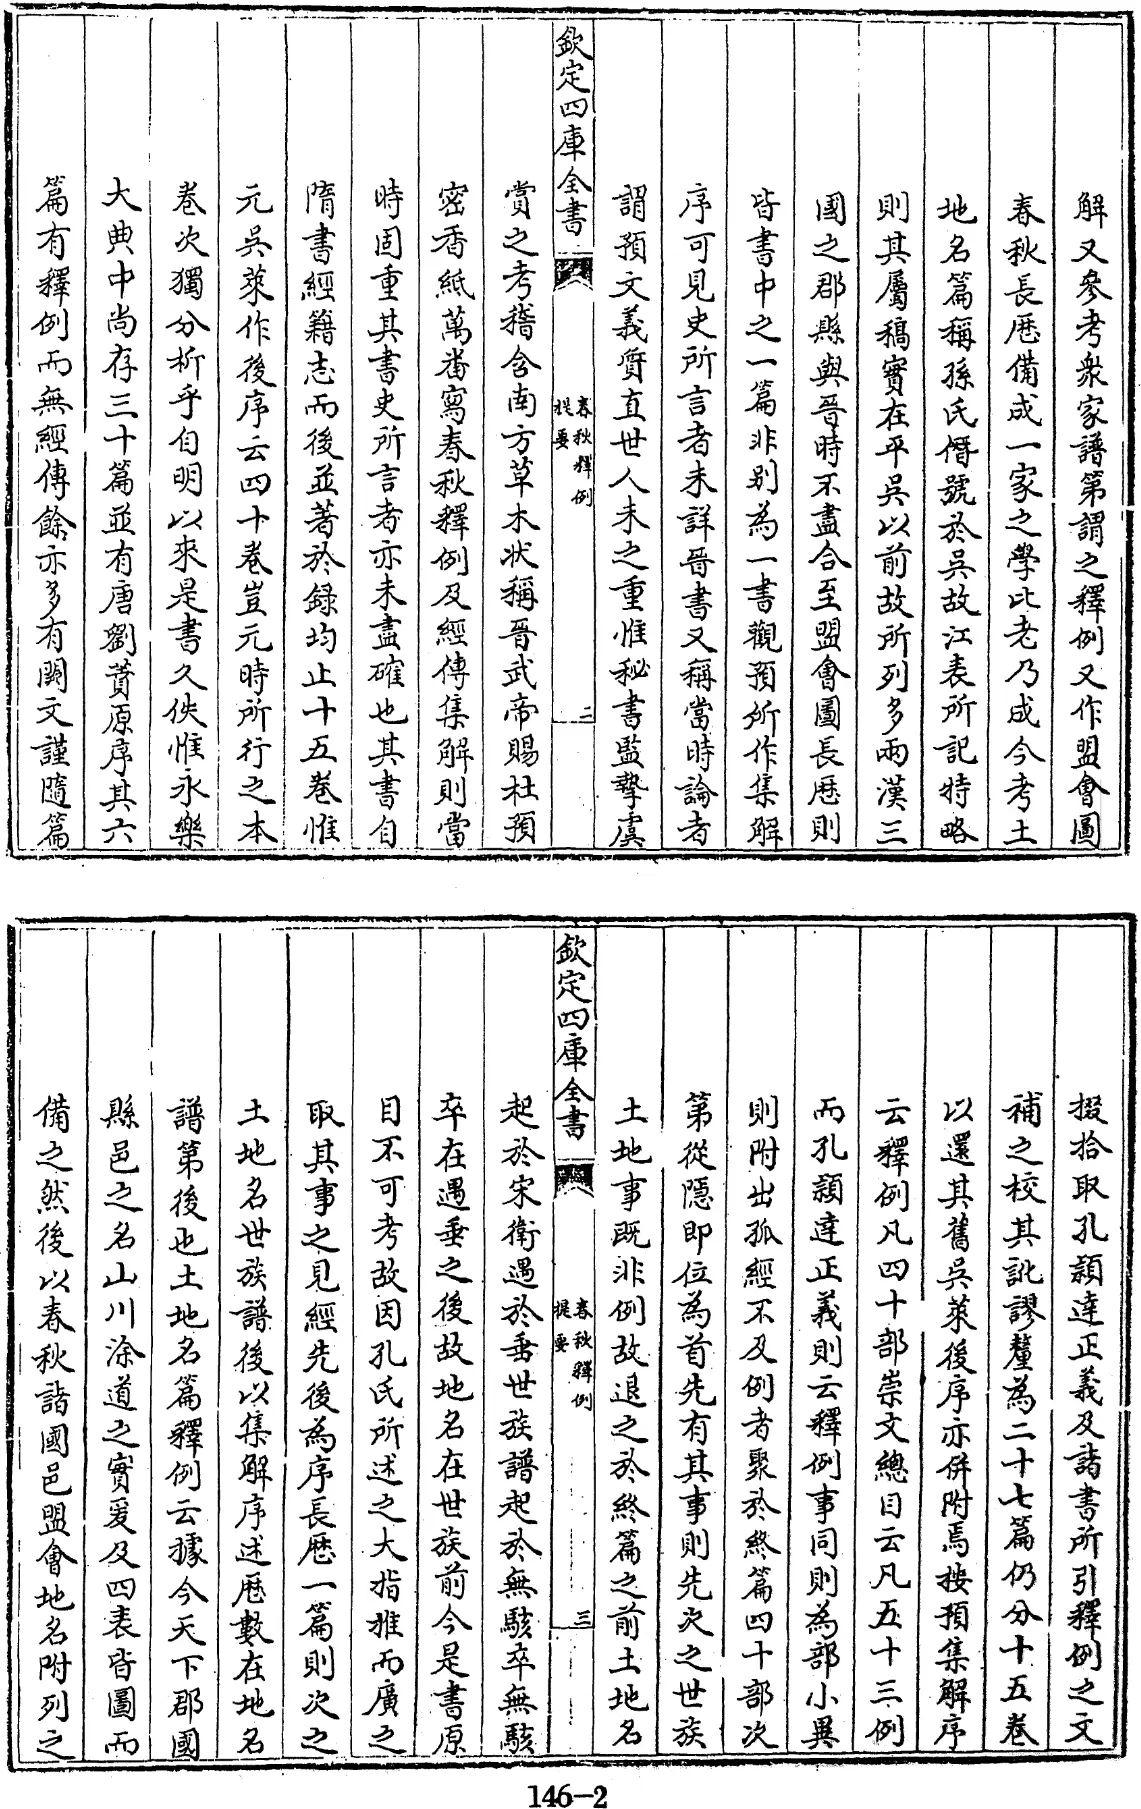 解又參考衆家譜第謂之釋例又作盟會圖
春秋長歴備成一家之學比老乃成今考土
地名篇稱孫氏僭號於吳故江表所記特略
則其屬稿實在平吳以前故所列多兩漢三
國之郡縣與晉時不盡合至盟會圖長歴則
皆書中之一篇非别為一書觀預所作集解
序可見史所言者未詳晉書又稱當時論者
謂預文義質直世人未之重惟秘書監摯虞
欽定四庫全書
春秋釋例
提要
二
賞之考嵇含南方草木狀稱晉武帝賜杜預
密香紙萬番寫春秋釋例及經傳集解則當
時固重其書史所言者亦未盡確也其書自
隋書經籍志而後並著於録均止十五卷惟
元吳萊作後序云四十卷豈元時所行之本
卷次獨分析乎自明以來是書久佚惟永樂
大典中尚存三十篇並有唐劉蕡原序其六
篇有釋例而無經傳餘亦多有闕文謹隨篇
掇拾取孔穎達正義及諸書所引釋例之文
補之校其訛謬釐為二十七篇仍分十五卷
以還其舊吳萊後序亦併附焉按預集解序
云釋例凡四十部崇文總目云凡五十三例
而孔穎達正義則云釋例事同則為部小異
則附出孤經不及例者聚於終篇四十部次
第從隱即位為首先有其事則先次之世族
土地事既非例故退之於終篇之前土地名
欽定四庫全書
春秋釋例
提要
三
起於宋衛遇於垂世族譜起於無駭卒無駭
卒在遇垂之後故地名在世族前今是書原
目不可考故因孔氏所述之大指推而廣之
取其事之見經先後為序長歴一篇則次之
土地名世族譜後以集解序述歴數在地名
譜第後也土地名篇釋例云據今天下郡國
縣邑之名山川涂道之實爰及四表皆圖而
備之然後以春秋諸國邑盟會地名附列之
146-2